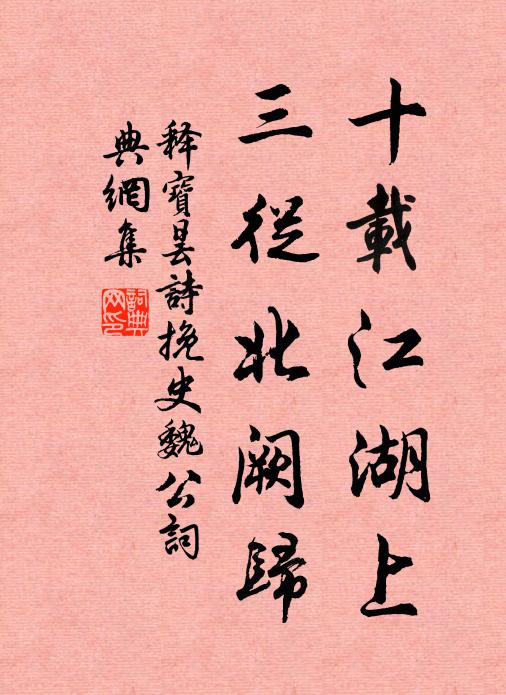 十載江湖上
三從北闕歸
释寶昙詩挽史魏公詞
典網集
詞典网印